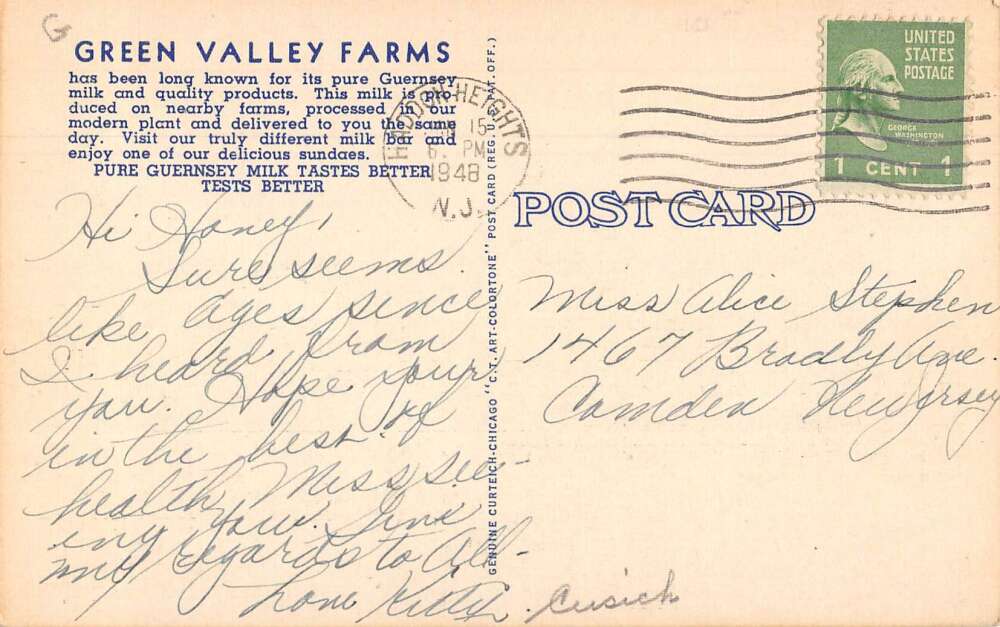 GREEN VALLEY FARMS
has been long known for its pure Guernsey
milk and quality products. This milk is pro-
duced on nearby farms, processed at our
modern plant and delivered to you the same
day. Visit our truly different milk bar and
enjoy one of our delicious sundaes.
PURE GUERNSEY MILK TASTES BETTER
TESTS BETTER
Hi Honey,
Sure seems
like ages since
I heard from
you. Hope your
in the best of
health, Miss see-
ing you. Give
my regards to all-
Love Kitty Cusick
GENUINE CURTEICH-CHICAGO "C.T. ART-COLORTONE" POST CARD (REG. U.S. PAT. OFF.)
HADDON HEIGHTS
15
6 PM
1948
N.J.
UNITED
STATES
POSTAGE
GEORGE
WASHINGTON
1 CENT 1
POST CARD
Miss Alice Stephen
1467 Bradly Ave.
Camden New Jersey